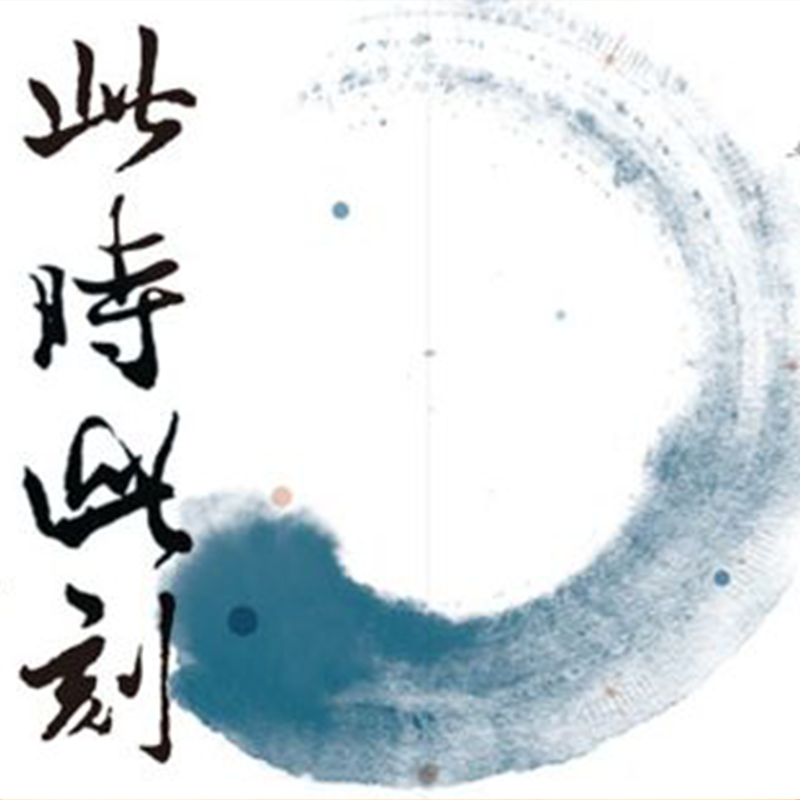 此時此刻